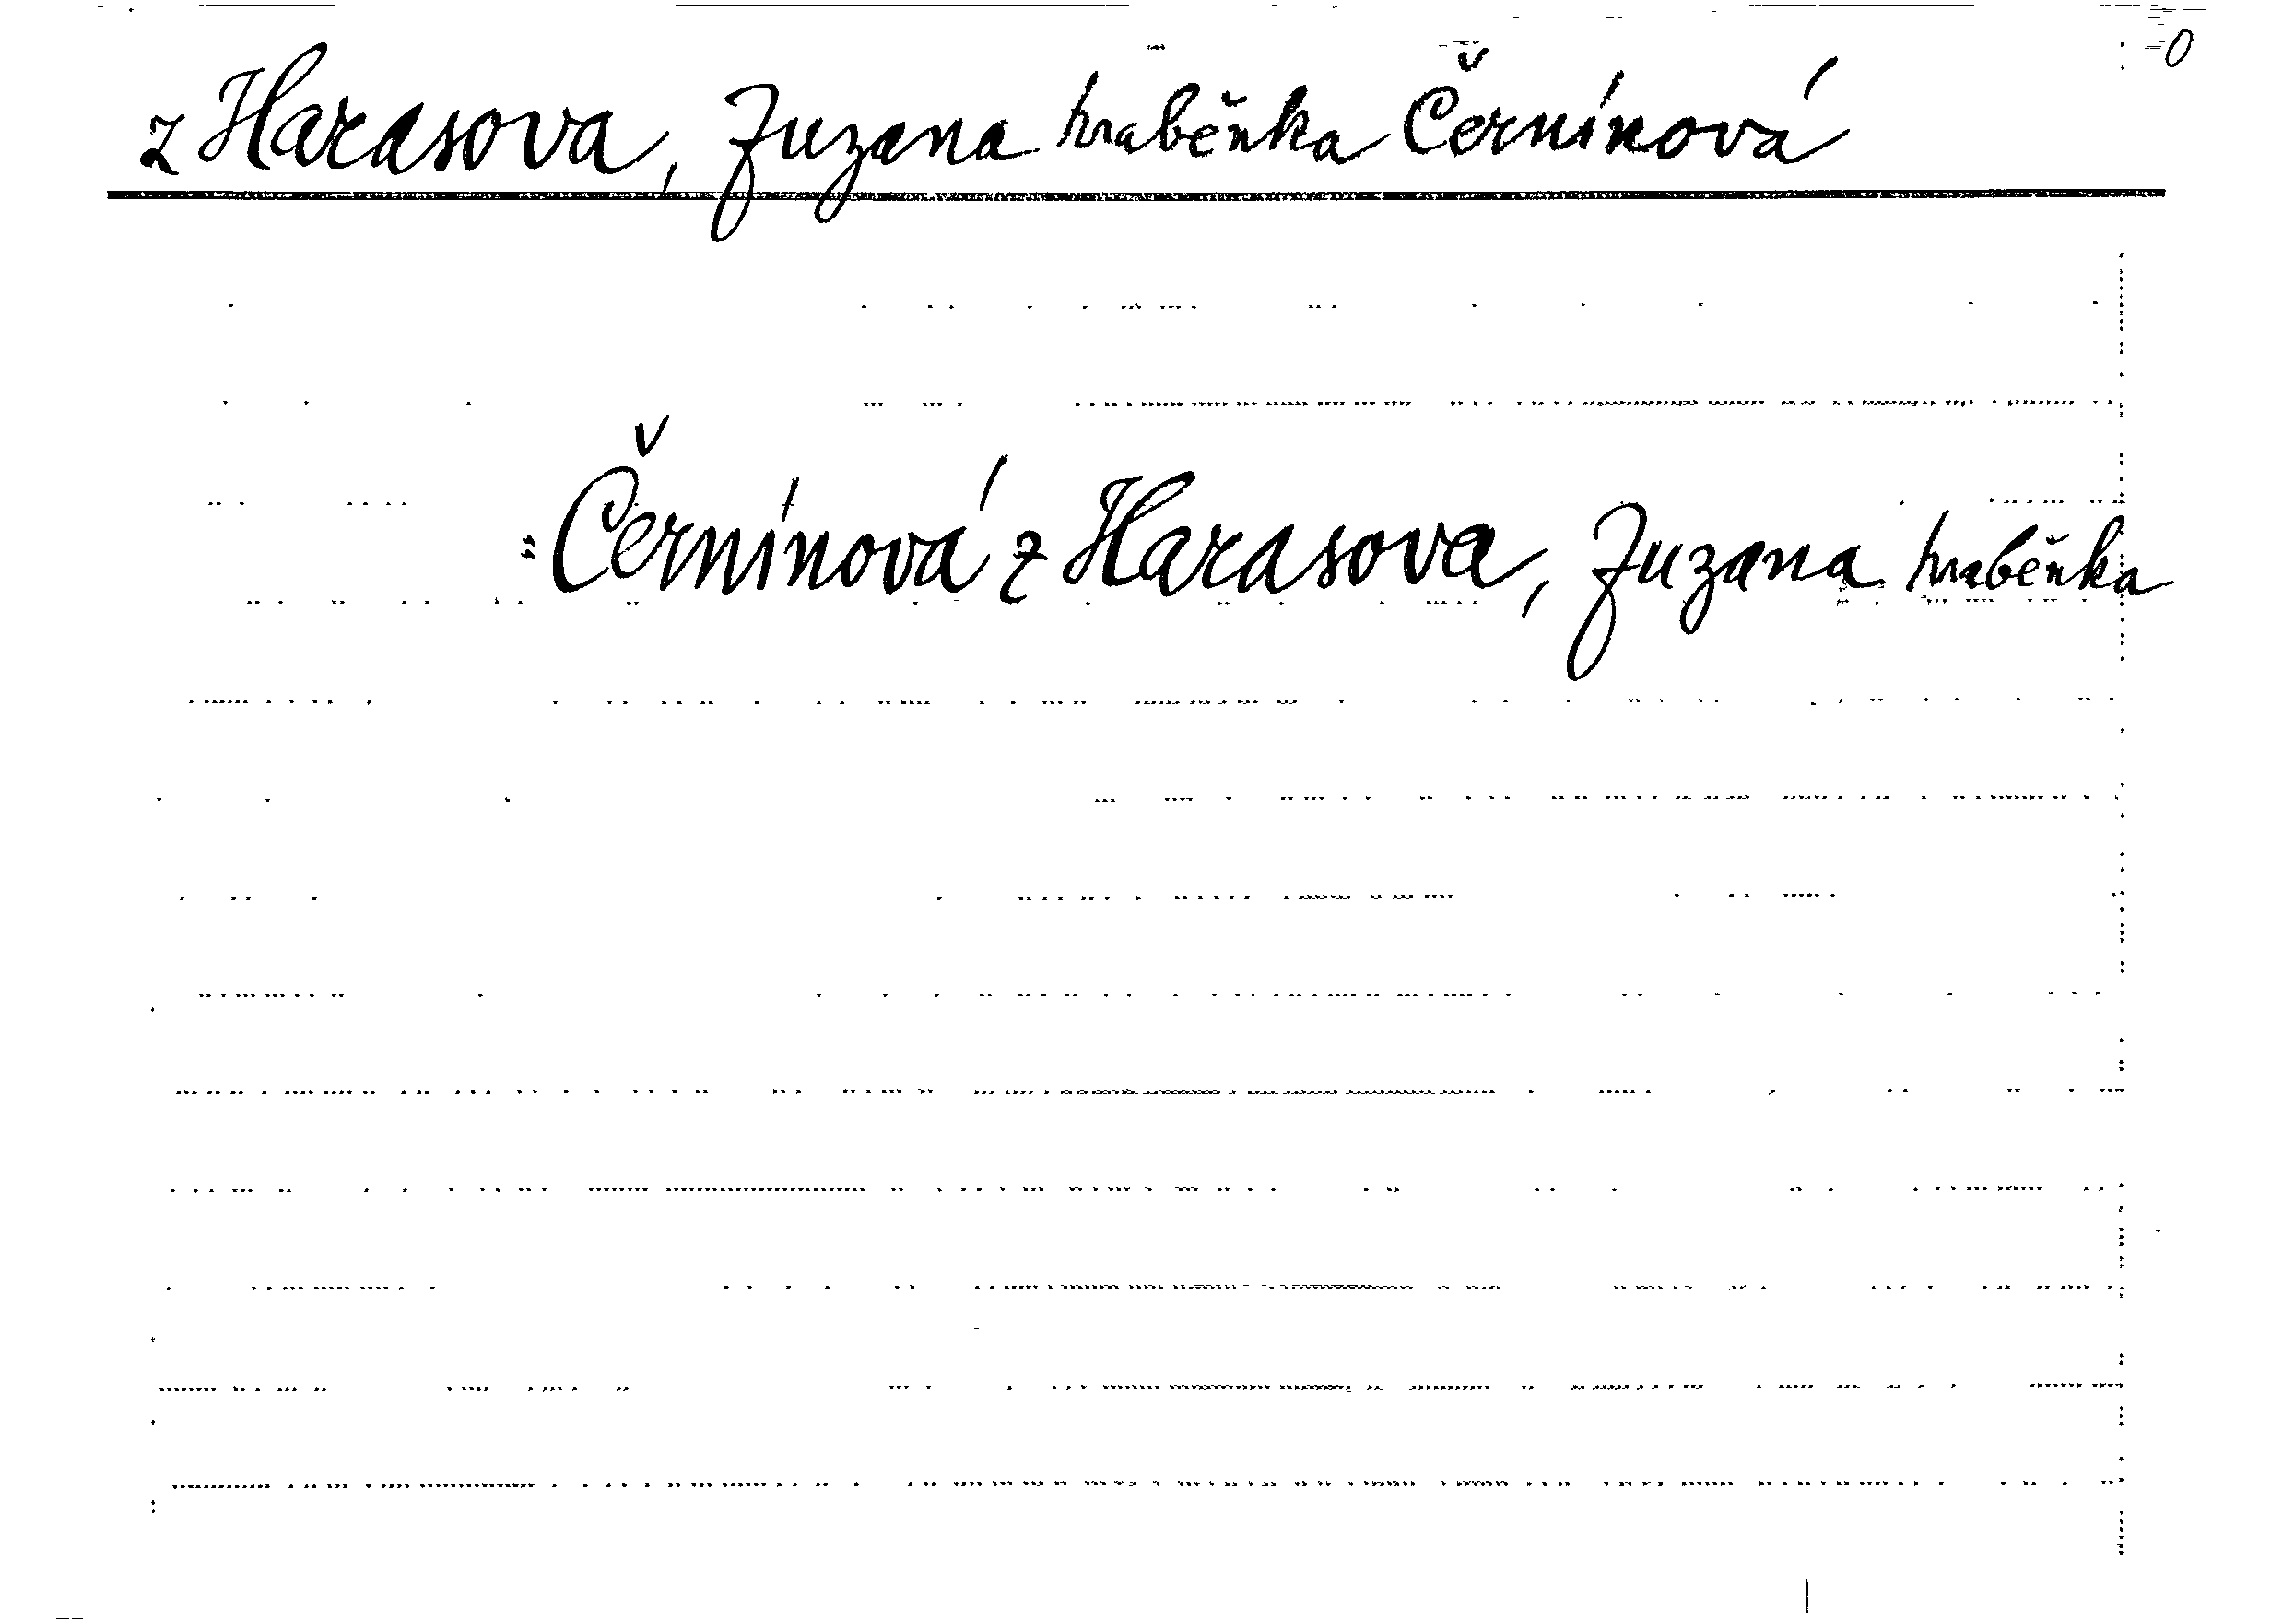 z Harasova, Zuzana hraběnka Černínová
= Černínová z Harasova, Zuzana hraběnka